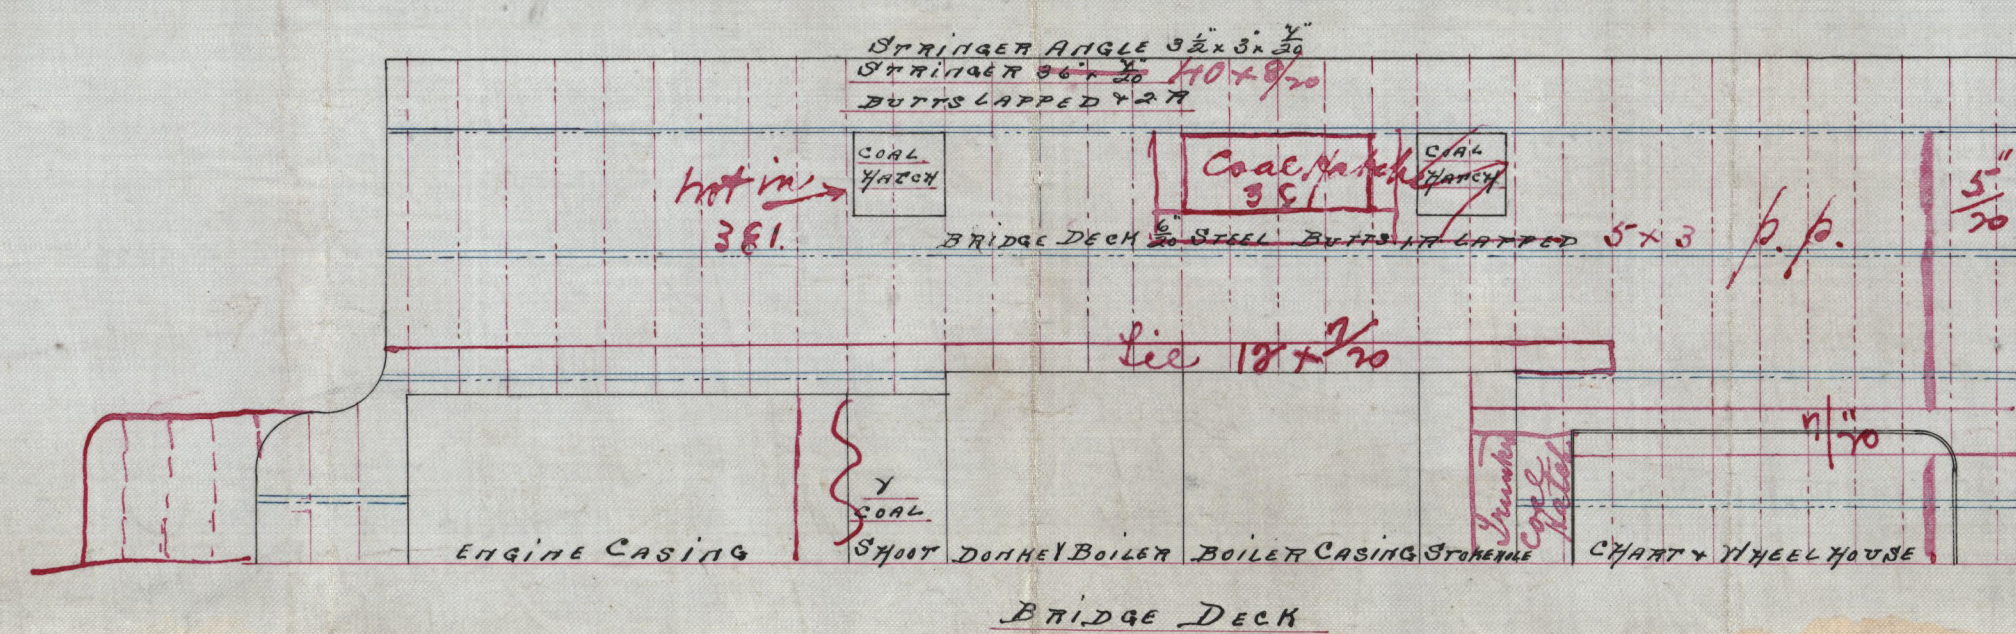 STRINGER ANGLE 3½" x 3" x 7/20"
STRINGER 36" x 7/20" 40 x 8/20
BUTTS LAPPED & 2 R
COAL
HATCH
Coal Hatch
3 & 1
COAL
HATCH
not in
3 & 1.
BRIDGE DECK 6/20" STEEL BUTTS 1 R LAPPED 5 x 3 p.p.
5/20"
Tie 12 x 7/20
7/20"
Trunk
Coal
Hatch
&
COAL
SHOOT
ENGINE CASING
DONKEY BOILER
BOILER CASING
STOKEHOLE
CHART & WHEEL HOUSE
BRIDGE DECK